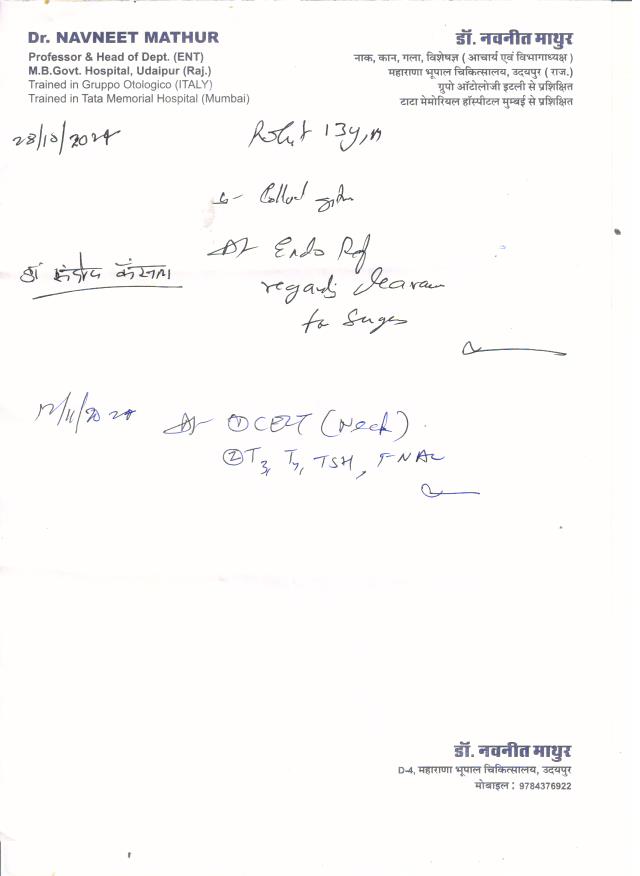 Dr. NAVNEET MATHUR
Professor & Head of Dept. (ENT)
M.B.Govt. Hospital, Udaipur (Raj.)
Trained in Gruppo Otologico (ITALY)
Trained in Tata Memorial Hospital (Mumbai)
डॉ. नवनीत माथुर
नाक, कान, गला, विशेषज्ञ ( आचार्य एवं विभागाध्यक्ष )
महाराणा भूपाल चिकित्सालय, उदयपुर ( राज.)
ग्रुपो ऑटोलोजी इटली से प्रशिक्षित
टाटा मेमोरियल हॉस्पीटल मुम्बई से प्रशिक्षित
28/10/2024
13y,m
Endo Ref
regards
for
12/11/2024
① CECT (Neck)
② T3, T4, TSH, FNAC
डॉ. नवनीत माथुर
D-4, महाराणा भूपाल चिकित्सालय, उदयपुर
मोबाइल : 9784376922